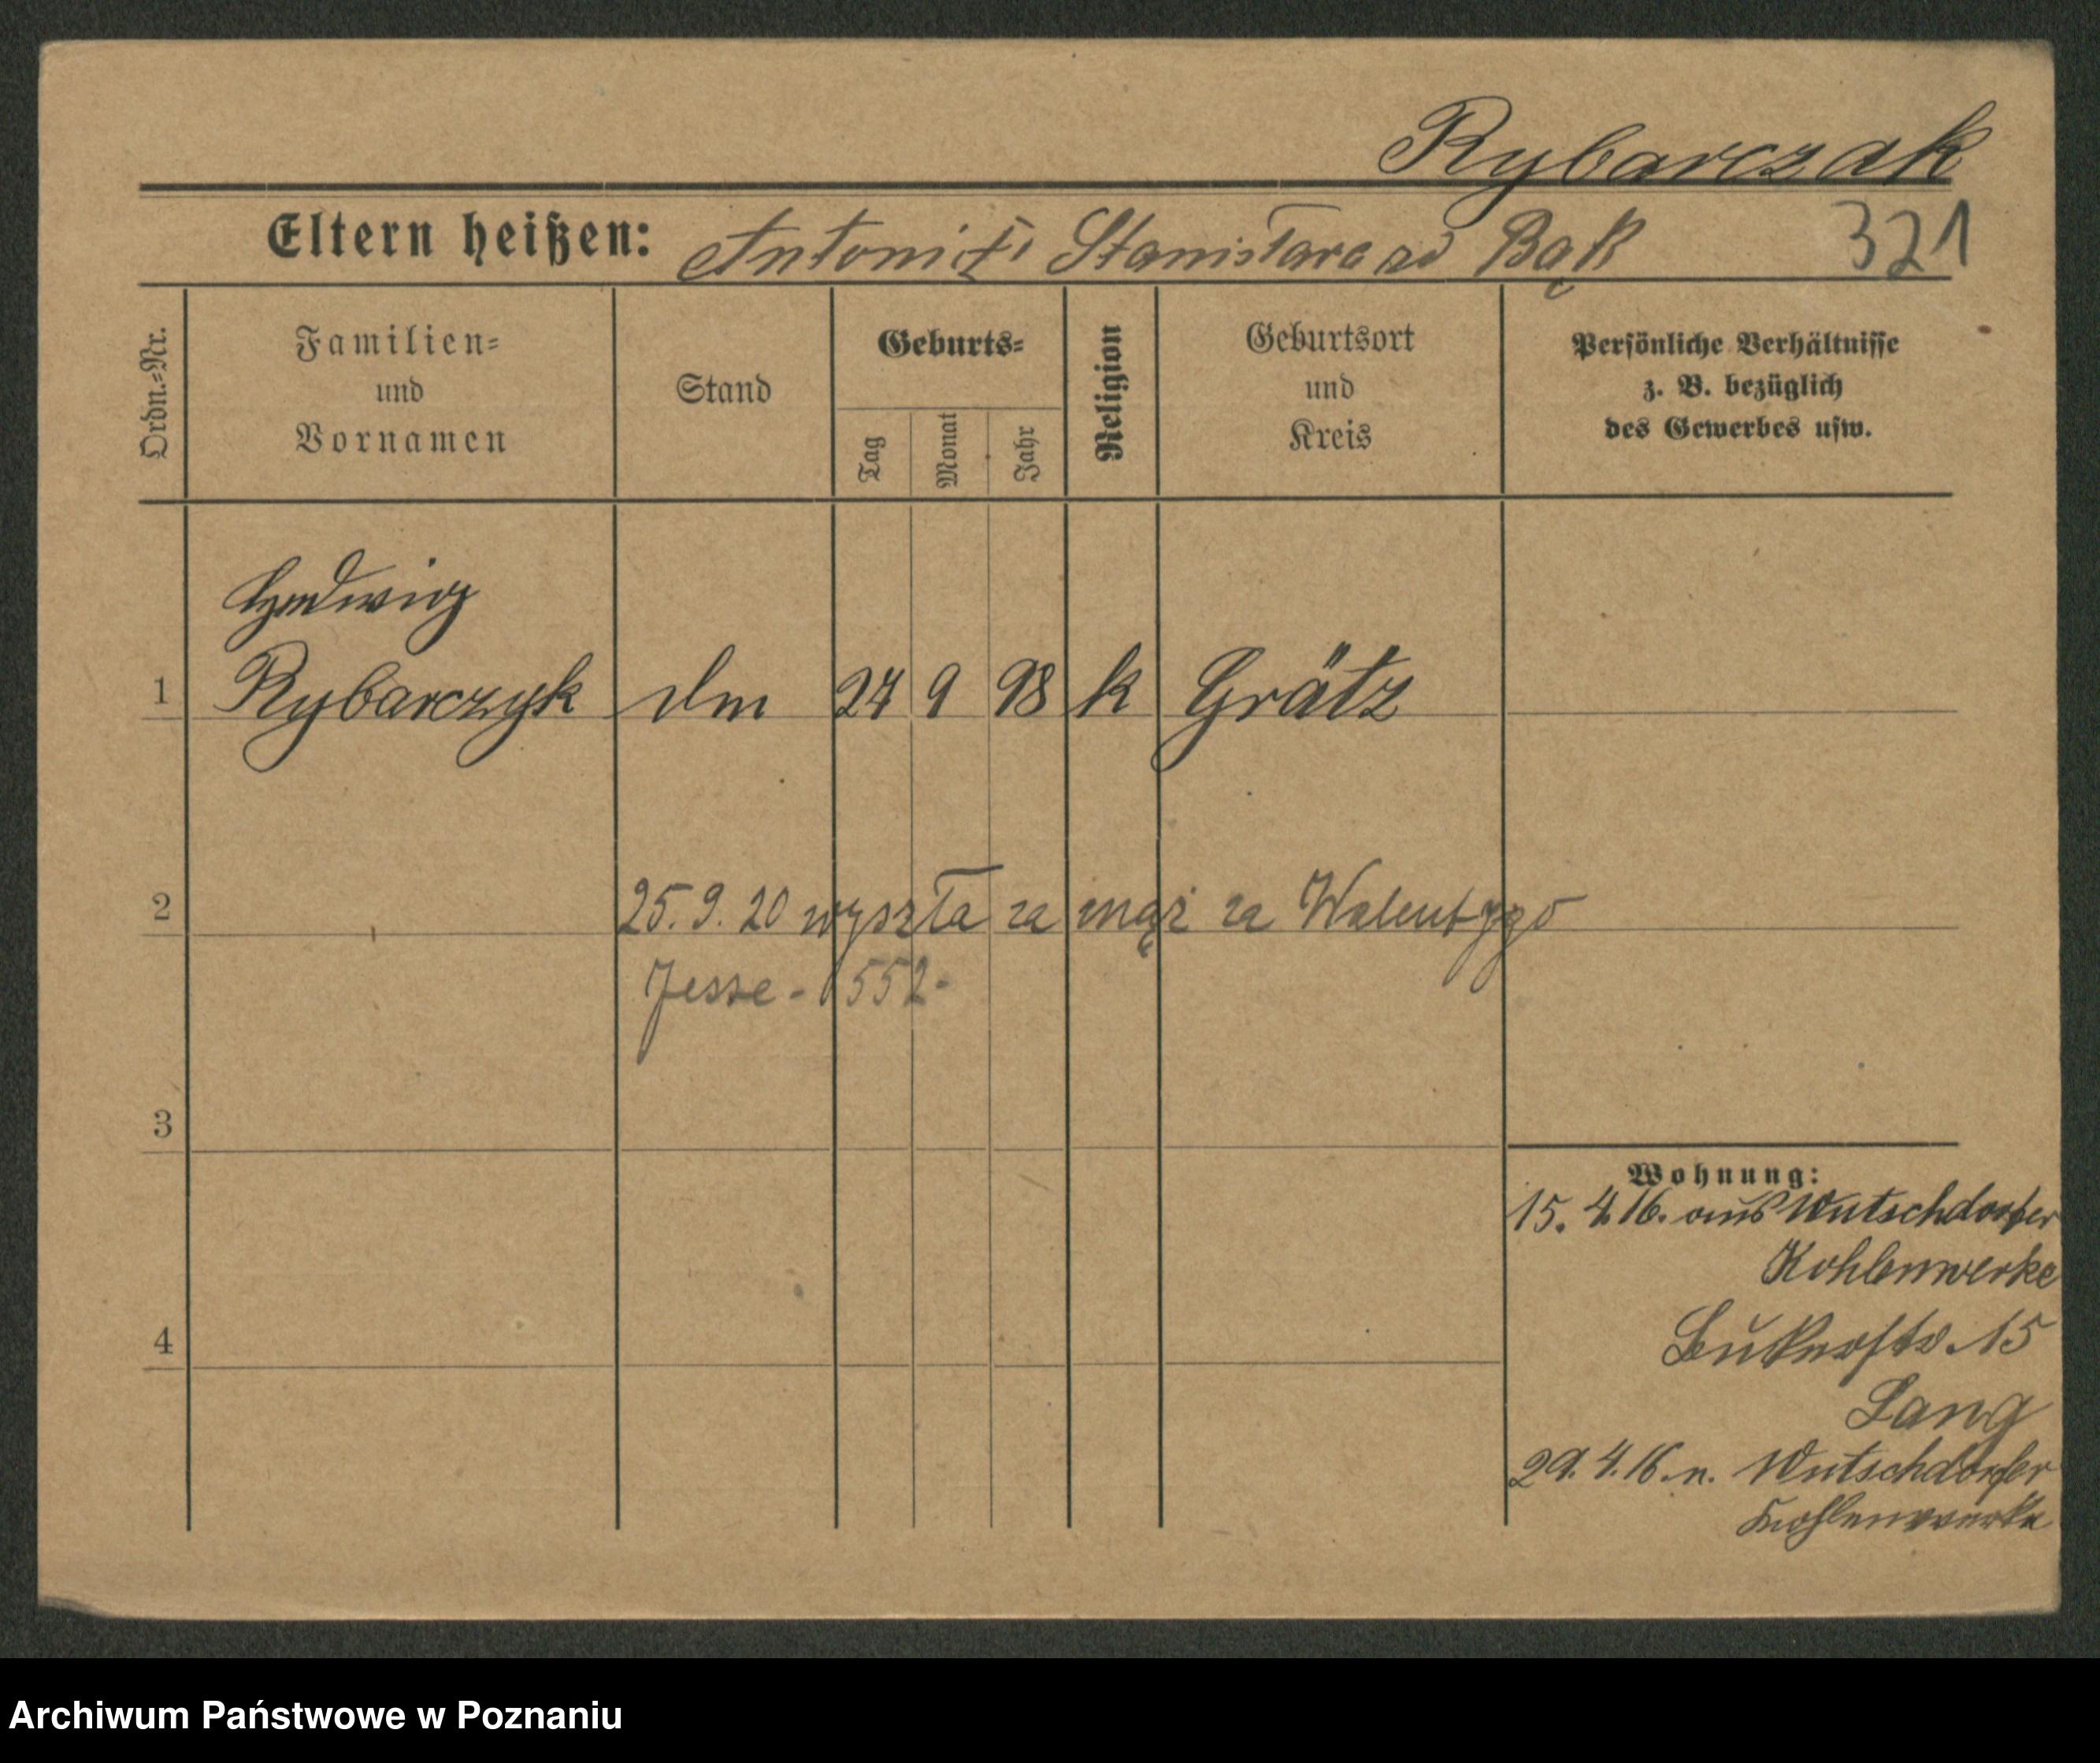 Rybarczak
Eltern heißen: Antoni i Stanisława zd Bąk 321
Ordn.-Nr.
Familien-
und
Vornamen
Stand
Geburts-
Tag
Monat
Jahr
Religion
Geburtsort
und
Kreis
Persönliche Verhältnisse
z. B. bezüglich
des Gewerbes usw.
Hedwig
1 Rybarczyk 27 9 98 k Grätz
2 25. 9. 20 wyszła za mąż za Walentygo
Jesse - 552 -
3
4
Wohnung:
15. 4. 16. aus Wutschdorfer
Kohlenwerke
Bukerstr. 15
Lang
29. 4. 16. n. Wutschdorfer
Kohlenwerke
Archiwum Państwowe w Poznaniu